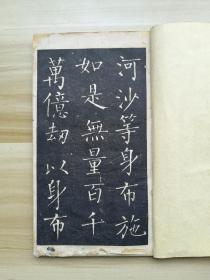 河沙等身布施
如是無量百千
萬億劫以身布